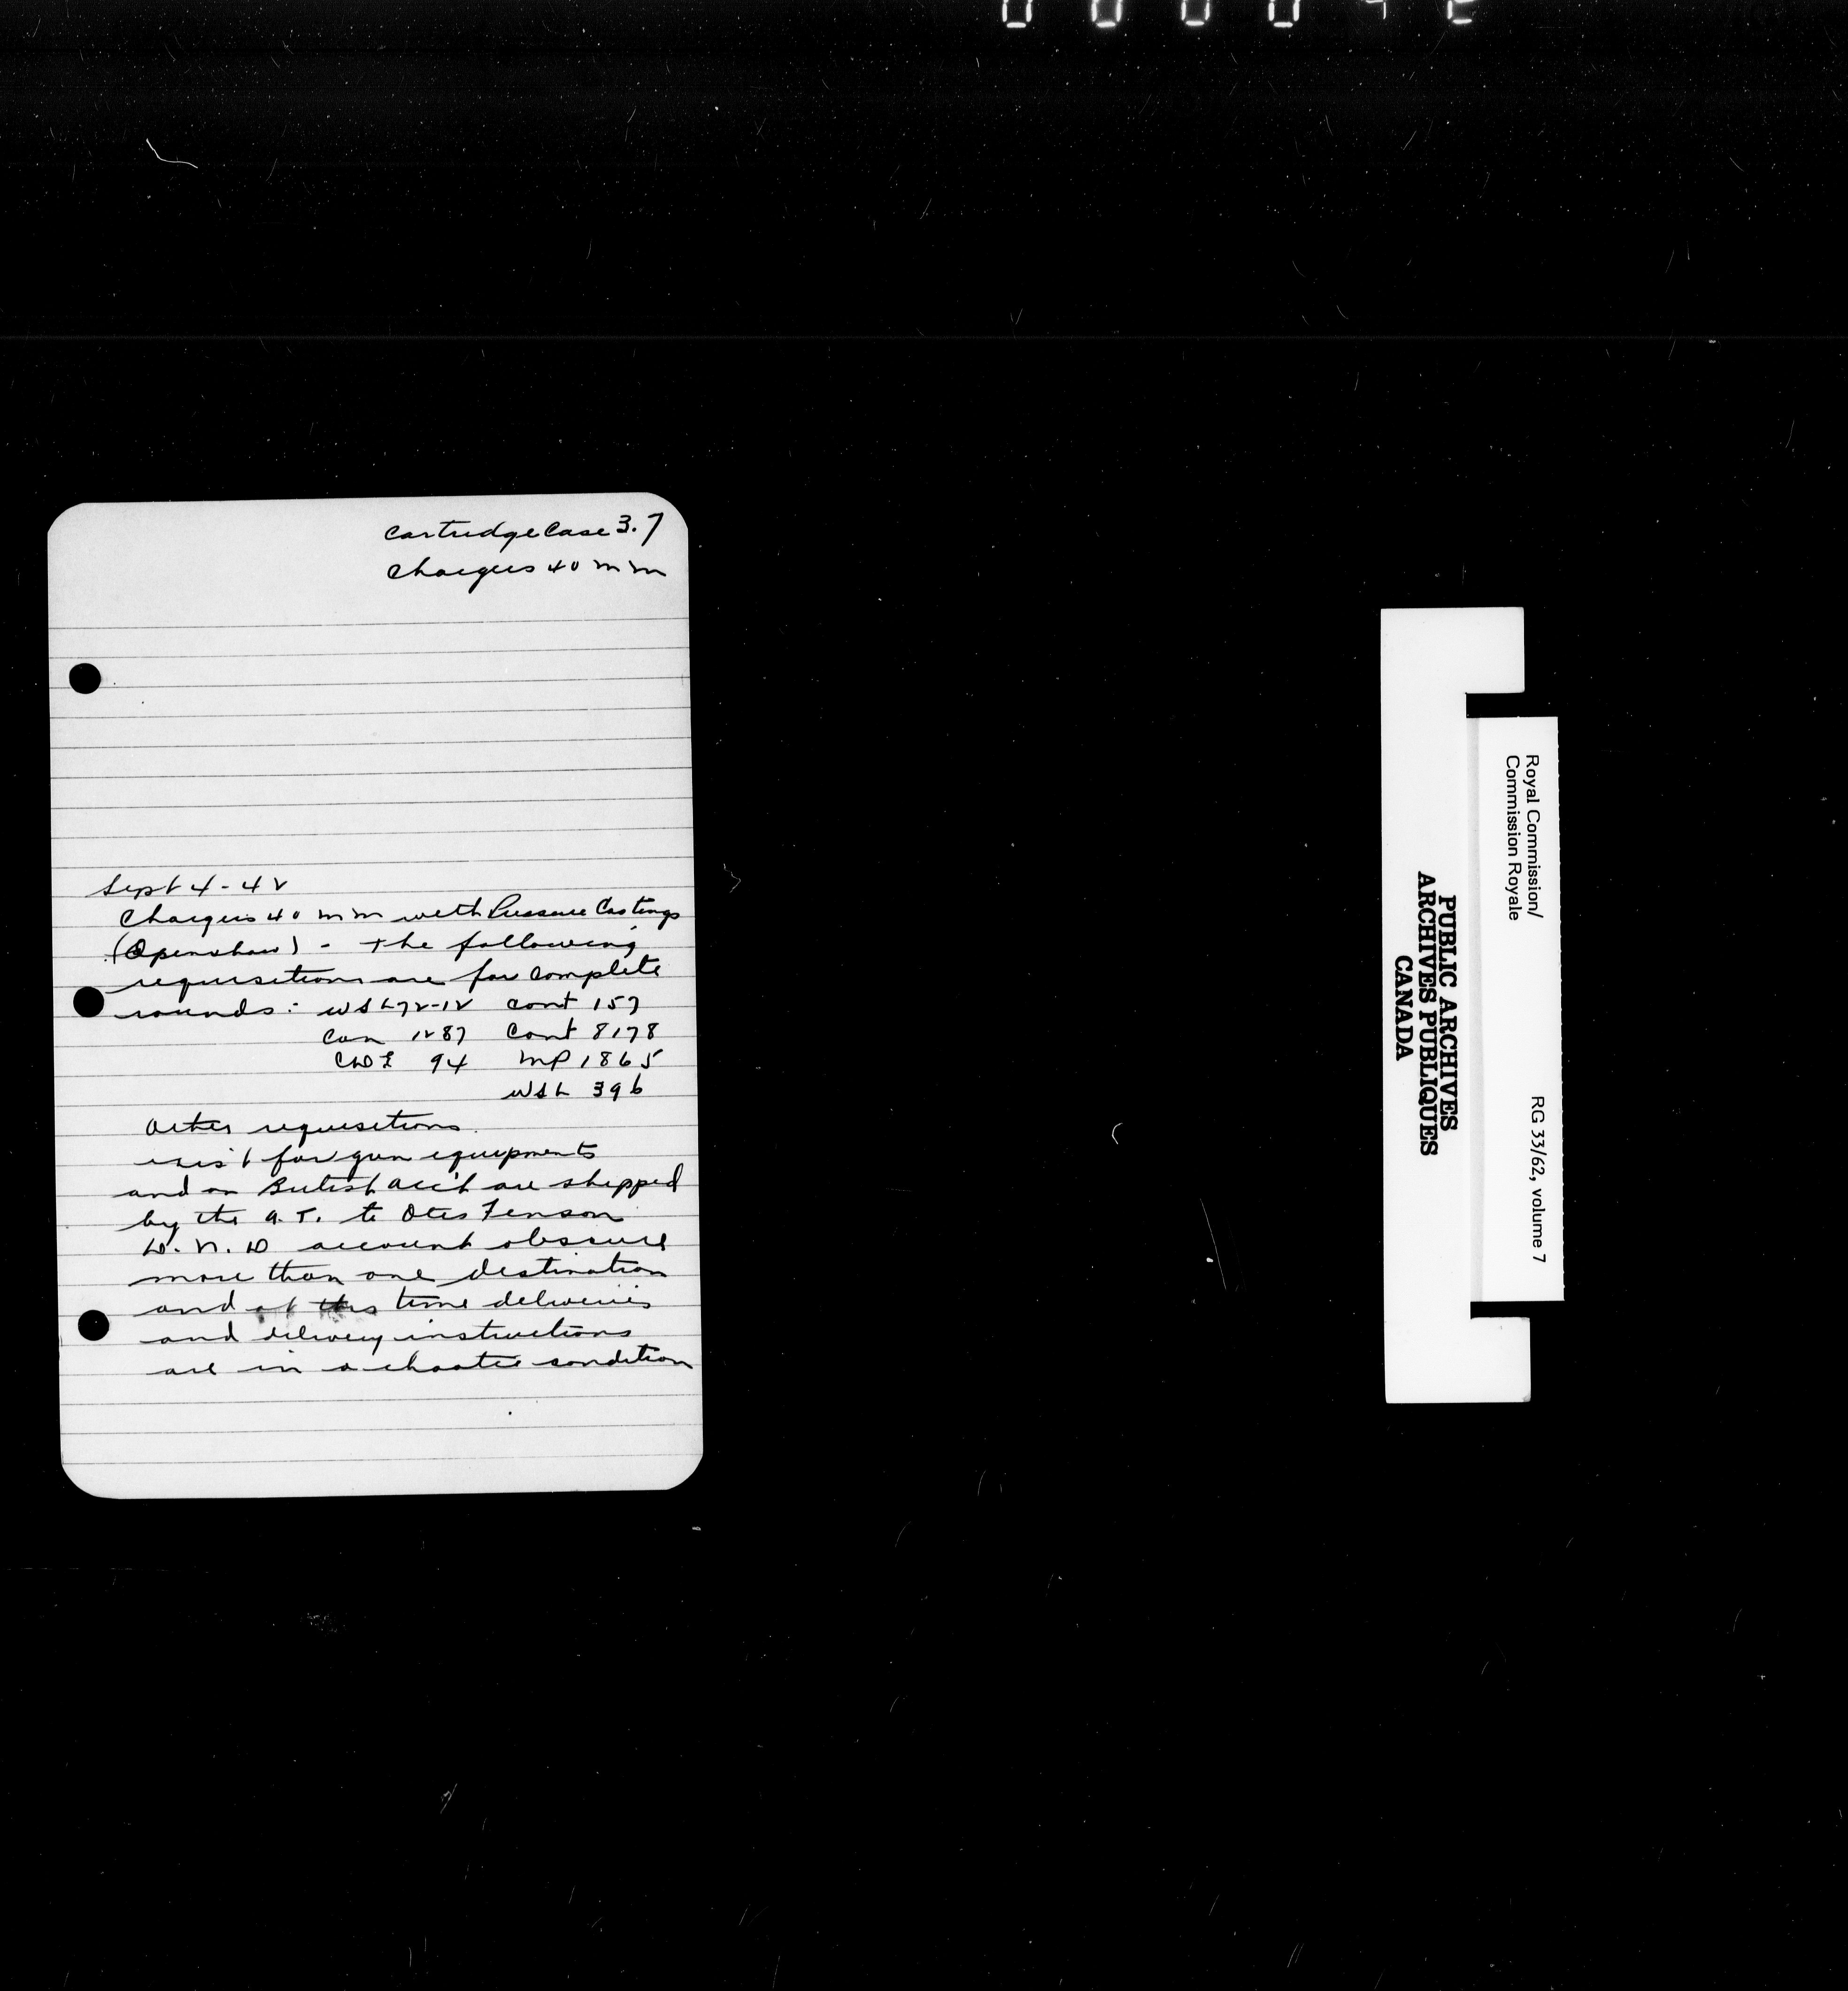 Cartridge Case 3.7
Chargers 40 mm
Sept 4-42
Chargers 40 mm with Pressure Castings
(Openshaw) - The following
requisitions are for complete
rounds: WSL72-12 Cont 157
Can 1287 Cont 8178
94 MP 1865
WSL 396
Other requisitions
exist for gun equipments
and on British acc't are shipped
by the A.T. to Otis Fenson
D.N.D account obscure
more than one destination
and at this time deliveries
and delivery instructions
are in a chaotic condition
Royal Commission/
Commission Royale
RG 33/62, volume 7
PUBLIC ARCHIVES
ARCHIVES PUBLIQUES
CANADA